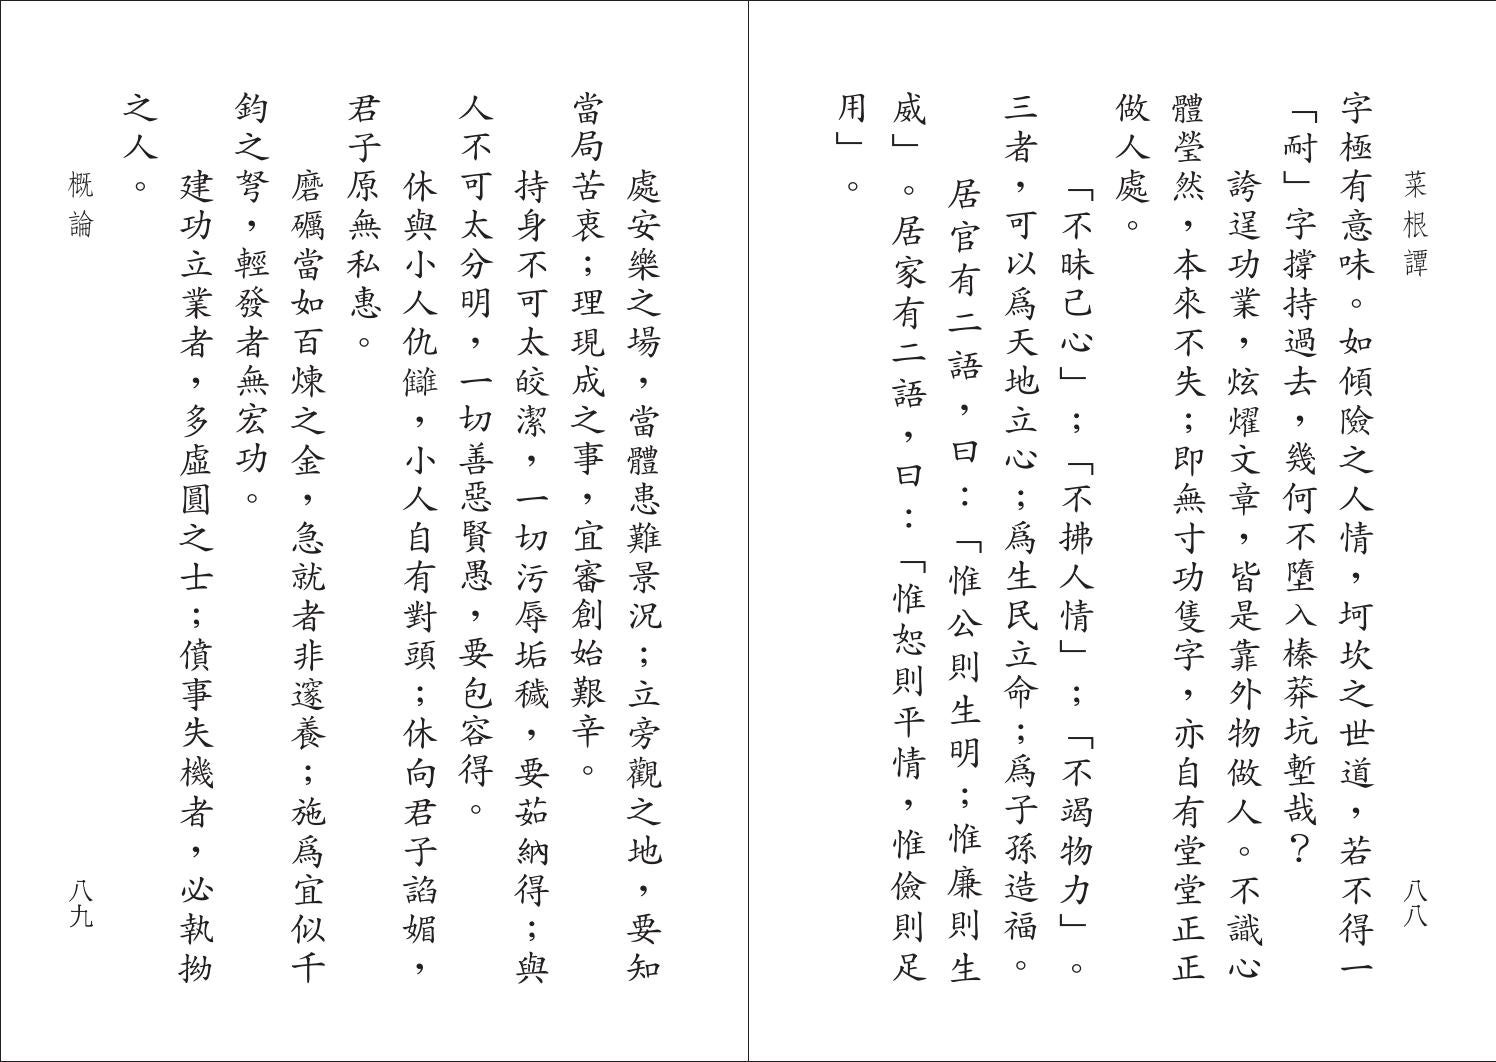 菜根譚
字極有意味。如傾險之人情，坷坎之世道，若不得一
「耐」字撐持過去，幾何不墮入榛莽坑塹哉？
誇逞功業，炫燿文章，皆是靠外物做人。不識心
體瑩然，本來不失；即無寸功隻字，亦自有堂堂正正
做人處。
「不昧己心」；「不拂人情」；「不竭物力」。
三者，可以爲天地立心；爲生民立命；爲子孫造福。
居官有二語，曰：「惟公則生明；惟廉則生
威」。居家有二語，曰：「惟恕則平情，惟儉則足
用」。
八八
處安樂之場，當體患難景況；立旁觀之地，要知
當局苦衷；理現成之事，宜審創始艱辛。
持身不可太皎潔，一切污辱垢穢，要茹納得；與
人不可太分明，一切善惡賢愚，要包容得。
休與小人仇讎，小人自有對頭；休向君子諂媚，
君子原無私惠。
磨礪當如百煉之金，急就者非邃養；施爲宜似千
鈞之弩，輕發者無宏功。
建功立業者，多虛圓之士；僨事失機者，必執拗
之人。
概論
八九